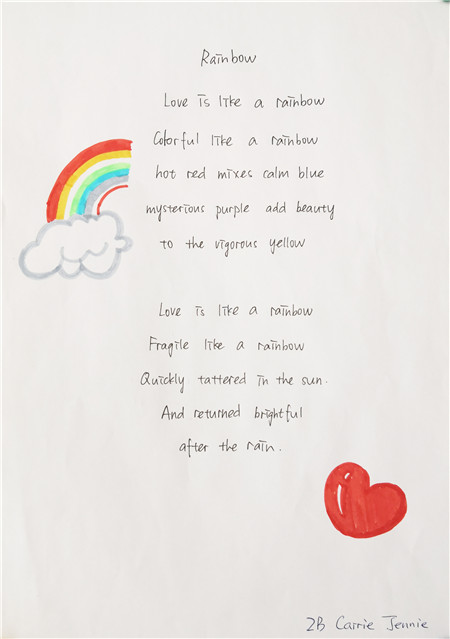 Rainbow
Love is like a rainbow
Colorful like a rainbow
hot red mixes calm blue
mysterious purple add beauty
to the vigorous yellow
Love is like a rainbow
Fragile like a rainbow
Quickly tattered in the sun.
And returned brightful
after the rain.
2B Carrie Jennie